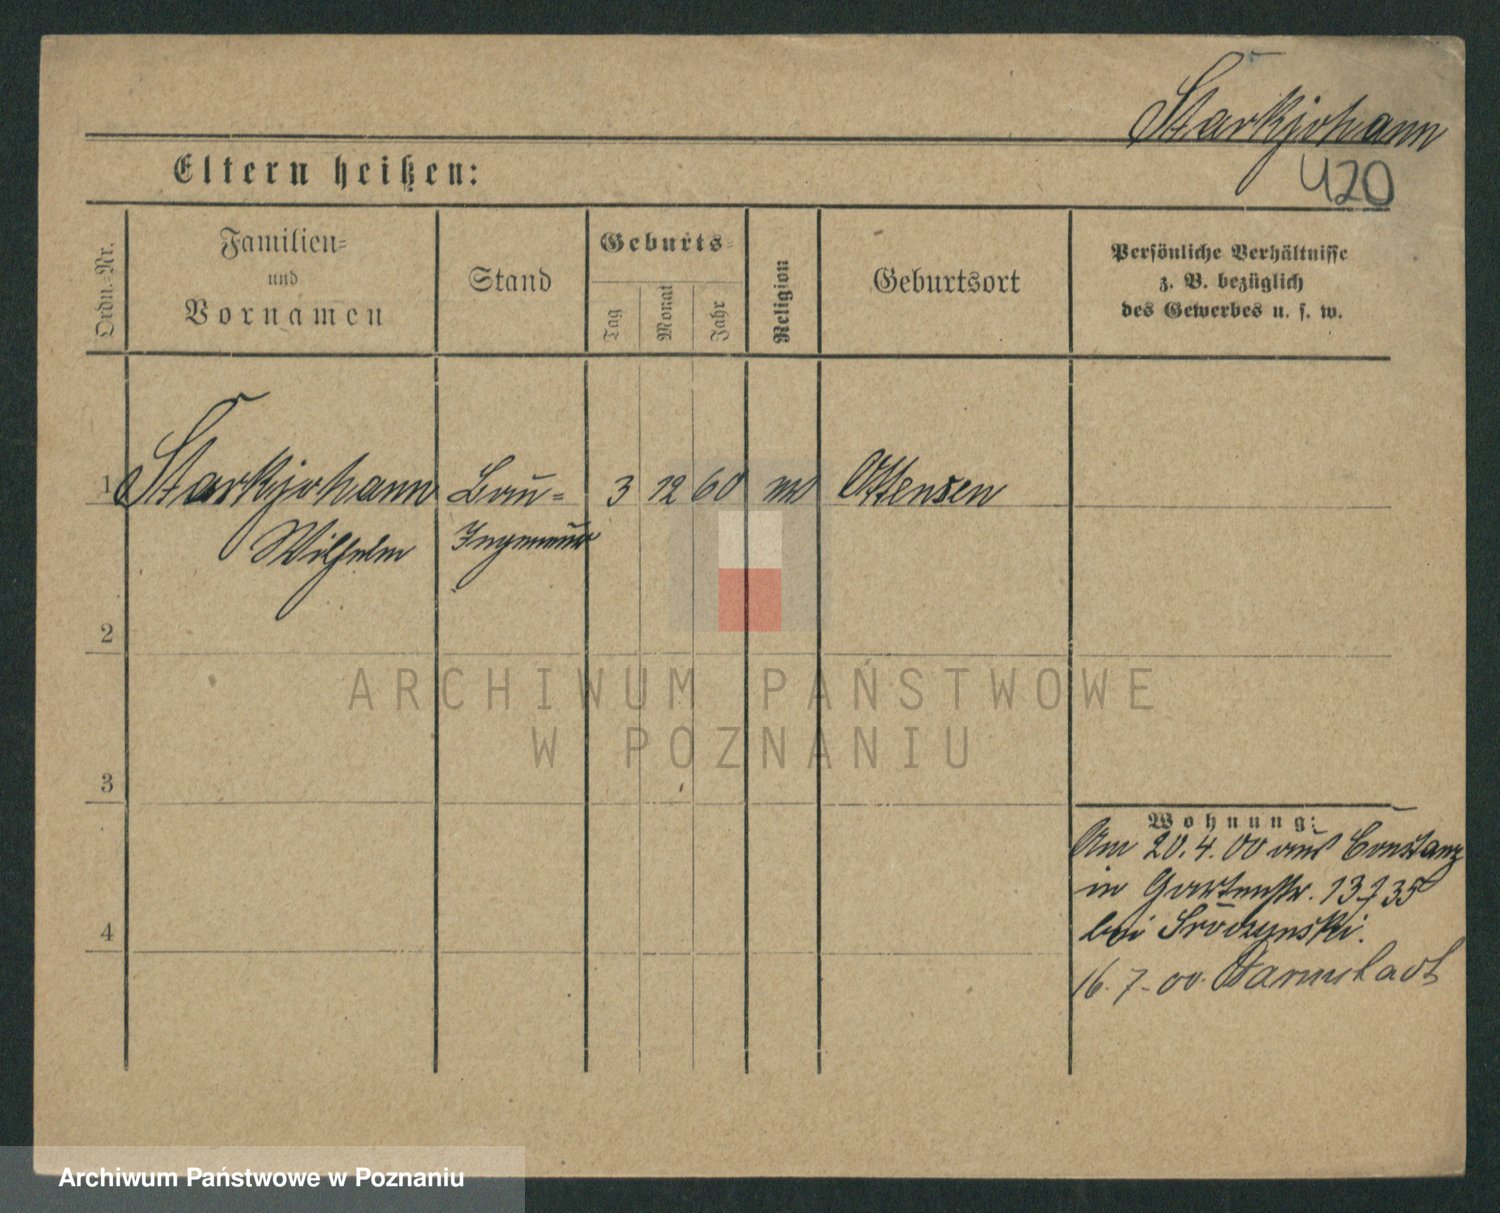 Starkjohann
420
Eltern heißen:
Ordn.-Nr.
Familien-
und
Vornamen
Stand
Geburts-
Tag
Monat
Jahr
Religion
Geburtsort
Persönliche Verhältnisse
z. B. bezüglich
des Gewerbes u. s. w.
1 Starkjohann Bau- 3 12 60 Ottensen
Wilhelm Ingenieur
2
3
4
Wohnung:
Am 20.4.00 aus Constanz
in Gartenstr. 13
bei
16.7.00. Darmstadt
ARCHIWUM PAŃSTWOWE
W POZNANIU
Archiwum Państwowe w Poznaniu